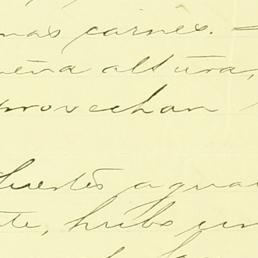 nas carnes. -
eña altura,
provechan
fuertes agua
te, hubo un